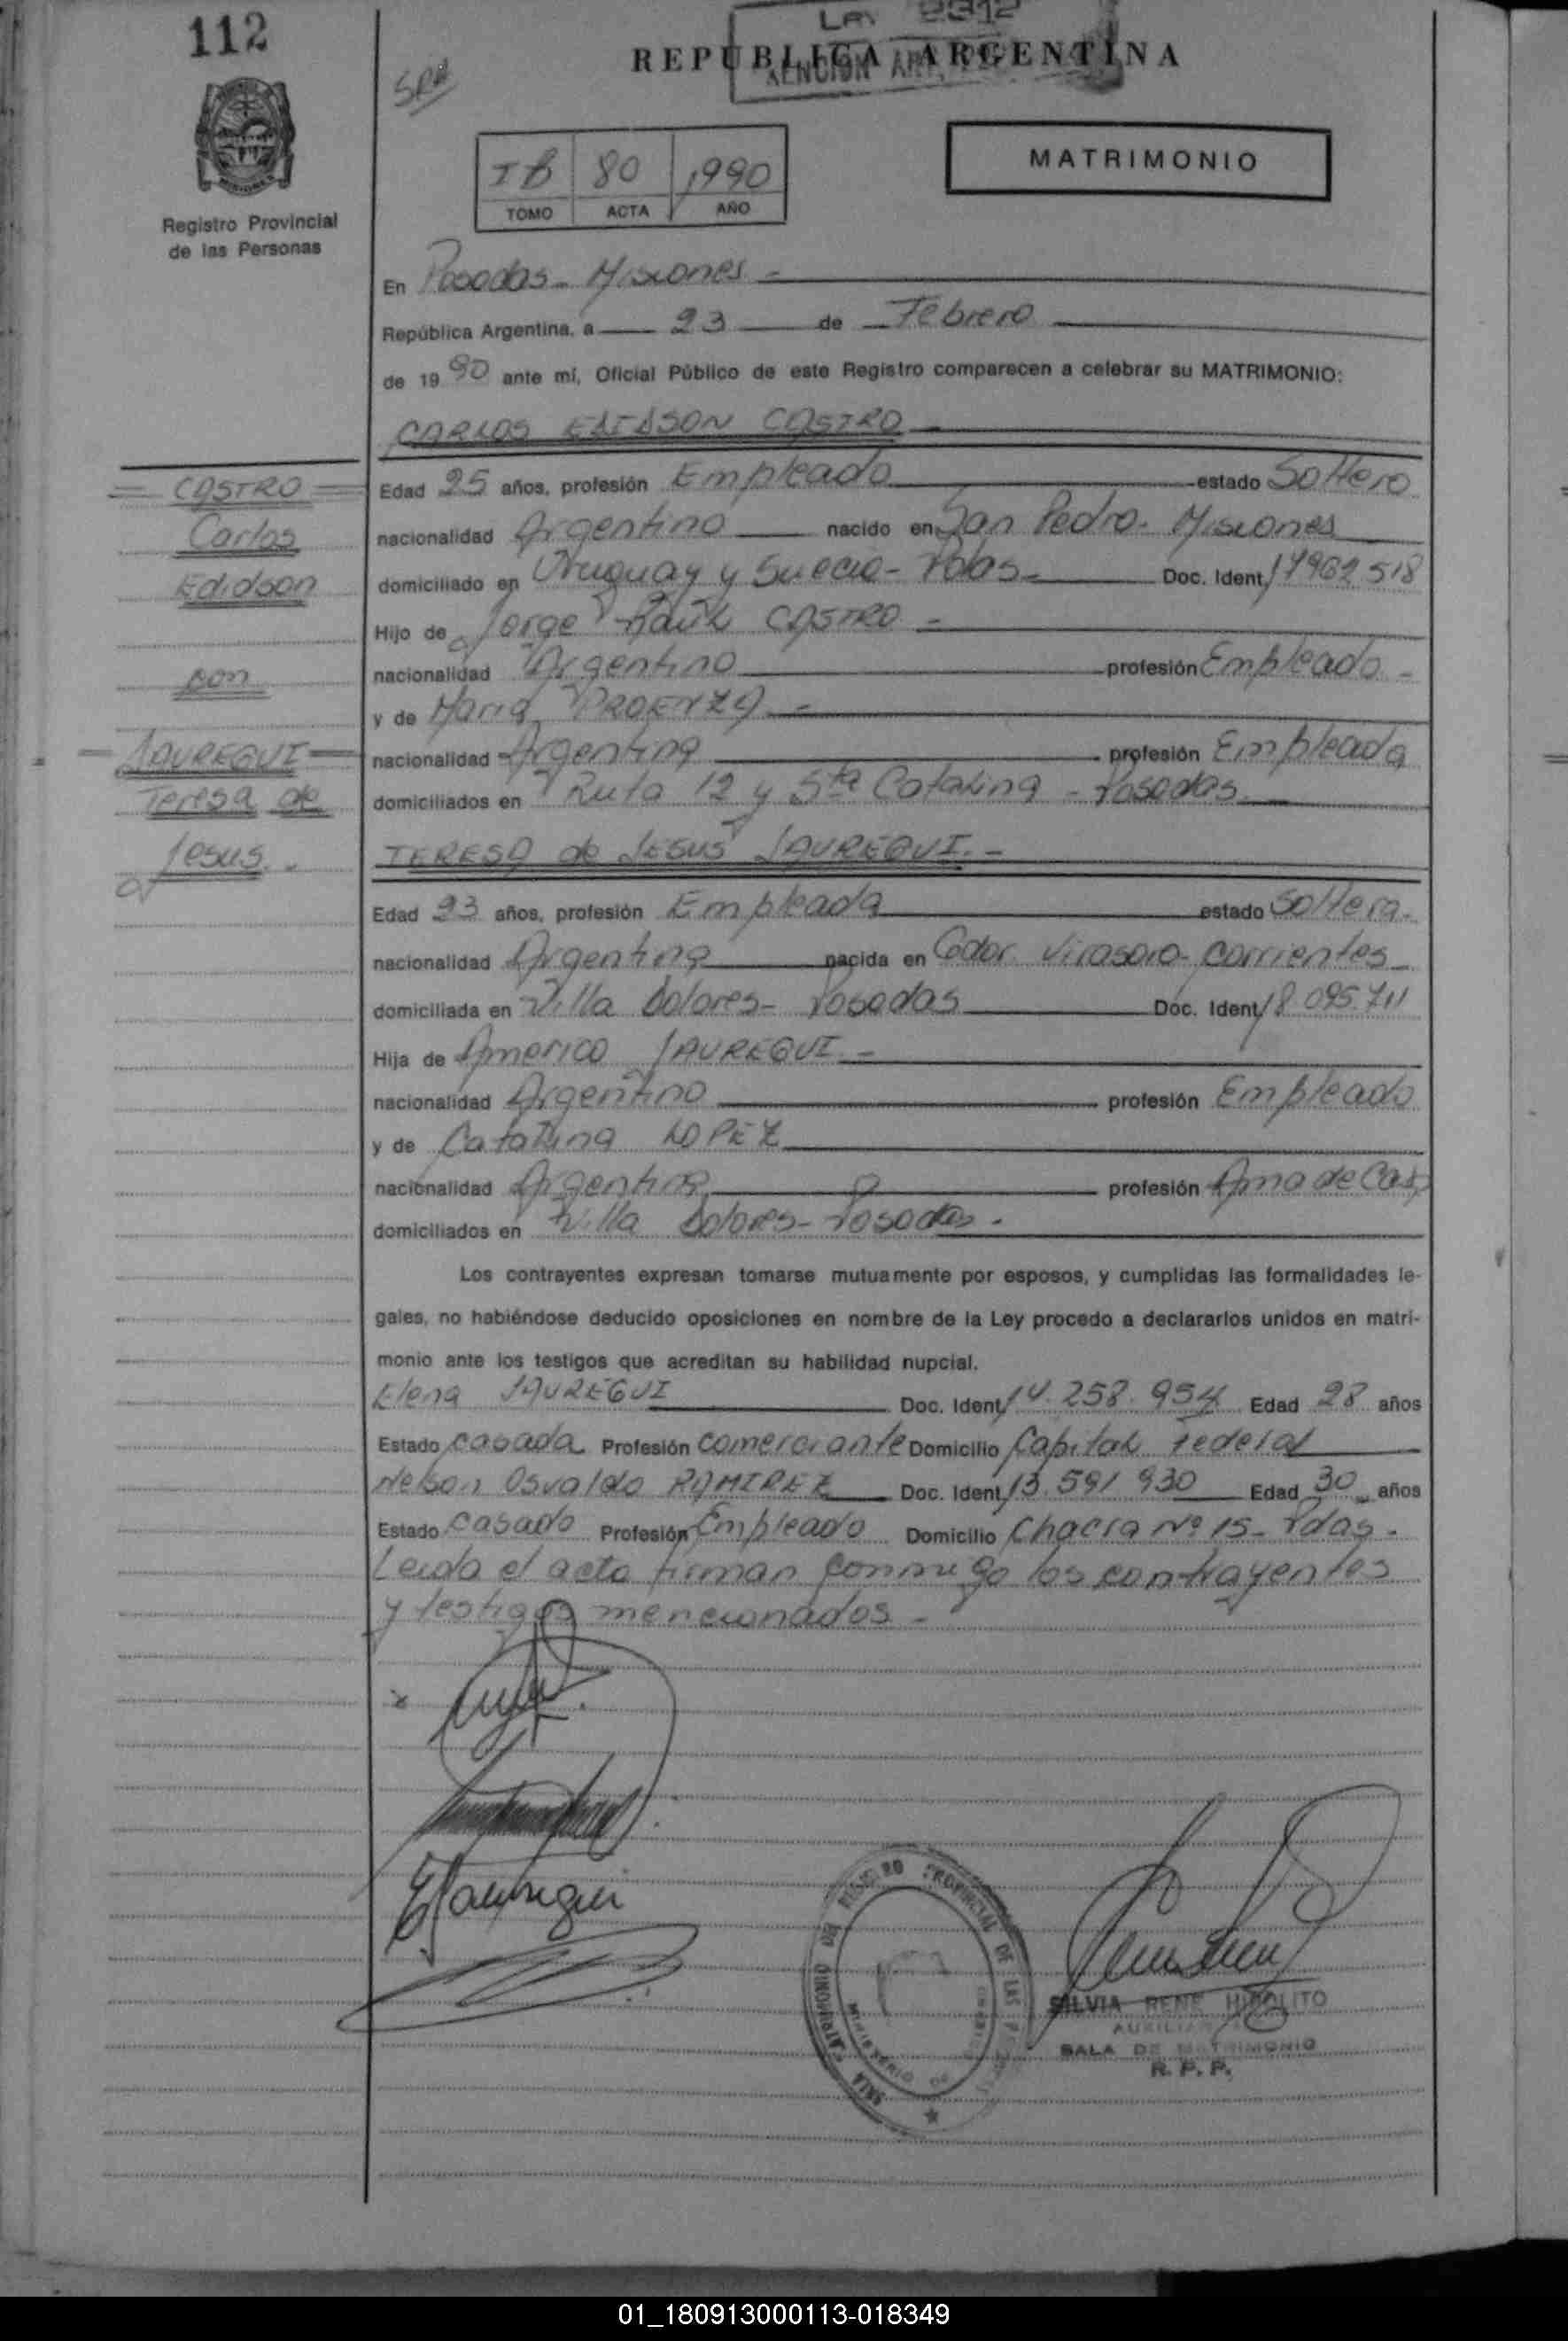 112
LEY 2312
REPUBLICA ARGENTINA
MATRIMONIO
80 1990
TOMO ACTA AÑO
Registro Provincial
de las Personas
En Posadas - Misiones -
República Argentina, a 23 de Febrero
de 1990 ante mí, Oficial Público de este Registro comparecen a celebrar su MATRIMONIO:
CARLOS EDIDSON CASTRO
CASTRO
Carlos
Edidson
con
JAUREGUI
Teresa de
Jesus.
Edad 25 años, profesión Empleado estado Soltero
nacionalidad Argentino nacido en San Pedro - Misiones
domiciliado en Uruguay y Suecia - Pdas - Doc. Ident. 17962518
Hijo de Jorge Raúl CASTRO -
nacionalidad Argentino profesión Empleado -
y de Maria PROENZA -
nacionalidad Argentina profesión Empleada
domiciliados en Ruta 12 y Sta Catalina - Posadas
TERESA de JESUS JAUREGUI. -
Edad 23 años, profesión Empleada estado Soltera.
nacionalidad Argentina nacida en Gdor. Virasoro - Corrientes
domiciliada en Villa Dolores - Posadas Doc. Ident. 18.095.711
Hija de Americo JAUREGUI -
nacionalidad Argentino profesión Empleado
y de Catalina LOPEZ
nacionalidad Argentina profesión Ama de Casa
domiciliados en Villa Dolores - Posadas.
Los contrayentes expresan tomarse mutuamente por esposos, y cumplidas las formalidades le-
gales, no habiéndose deducido oposiciones en nombre de la Ley procedo a declararlos unidos en matri-
monio ante los testigos que acreditan su habilidad nupcial.
Elena JAUREGUI Doc. Ident. 14.258.954 Edad 28 años
Estado casada Profesión comerciante Domicilio Capital Federal
Nelson Osvaldo RAMIREZ Doc. Ident. 13.591 930 Edad 30 años
Estado casado Profesión Empleado Domicilio Chacra Nº 15 - Pdas.
Leida el acta firman conmigo los contrayentes
y testigos mencionados -
EJauregui
REGISTRO PROVINCIAL DE LAS
MINISTERIO DE
SALA
SILVIA RENE HIPOLITO
AUXILIAR
SALA DE MATRIMONIO
R. P. P.
01_180913000113-018349